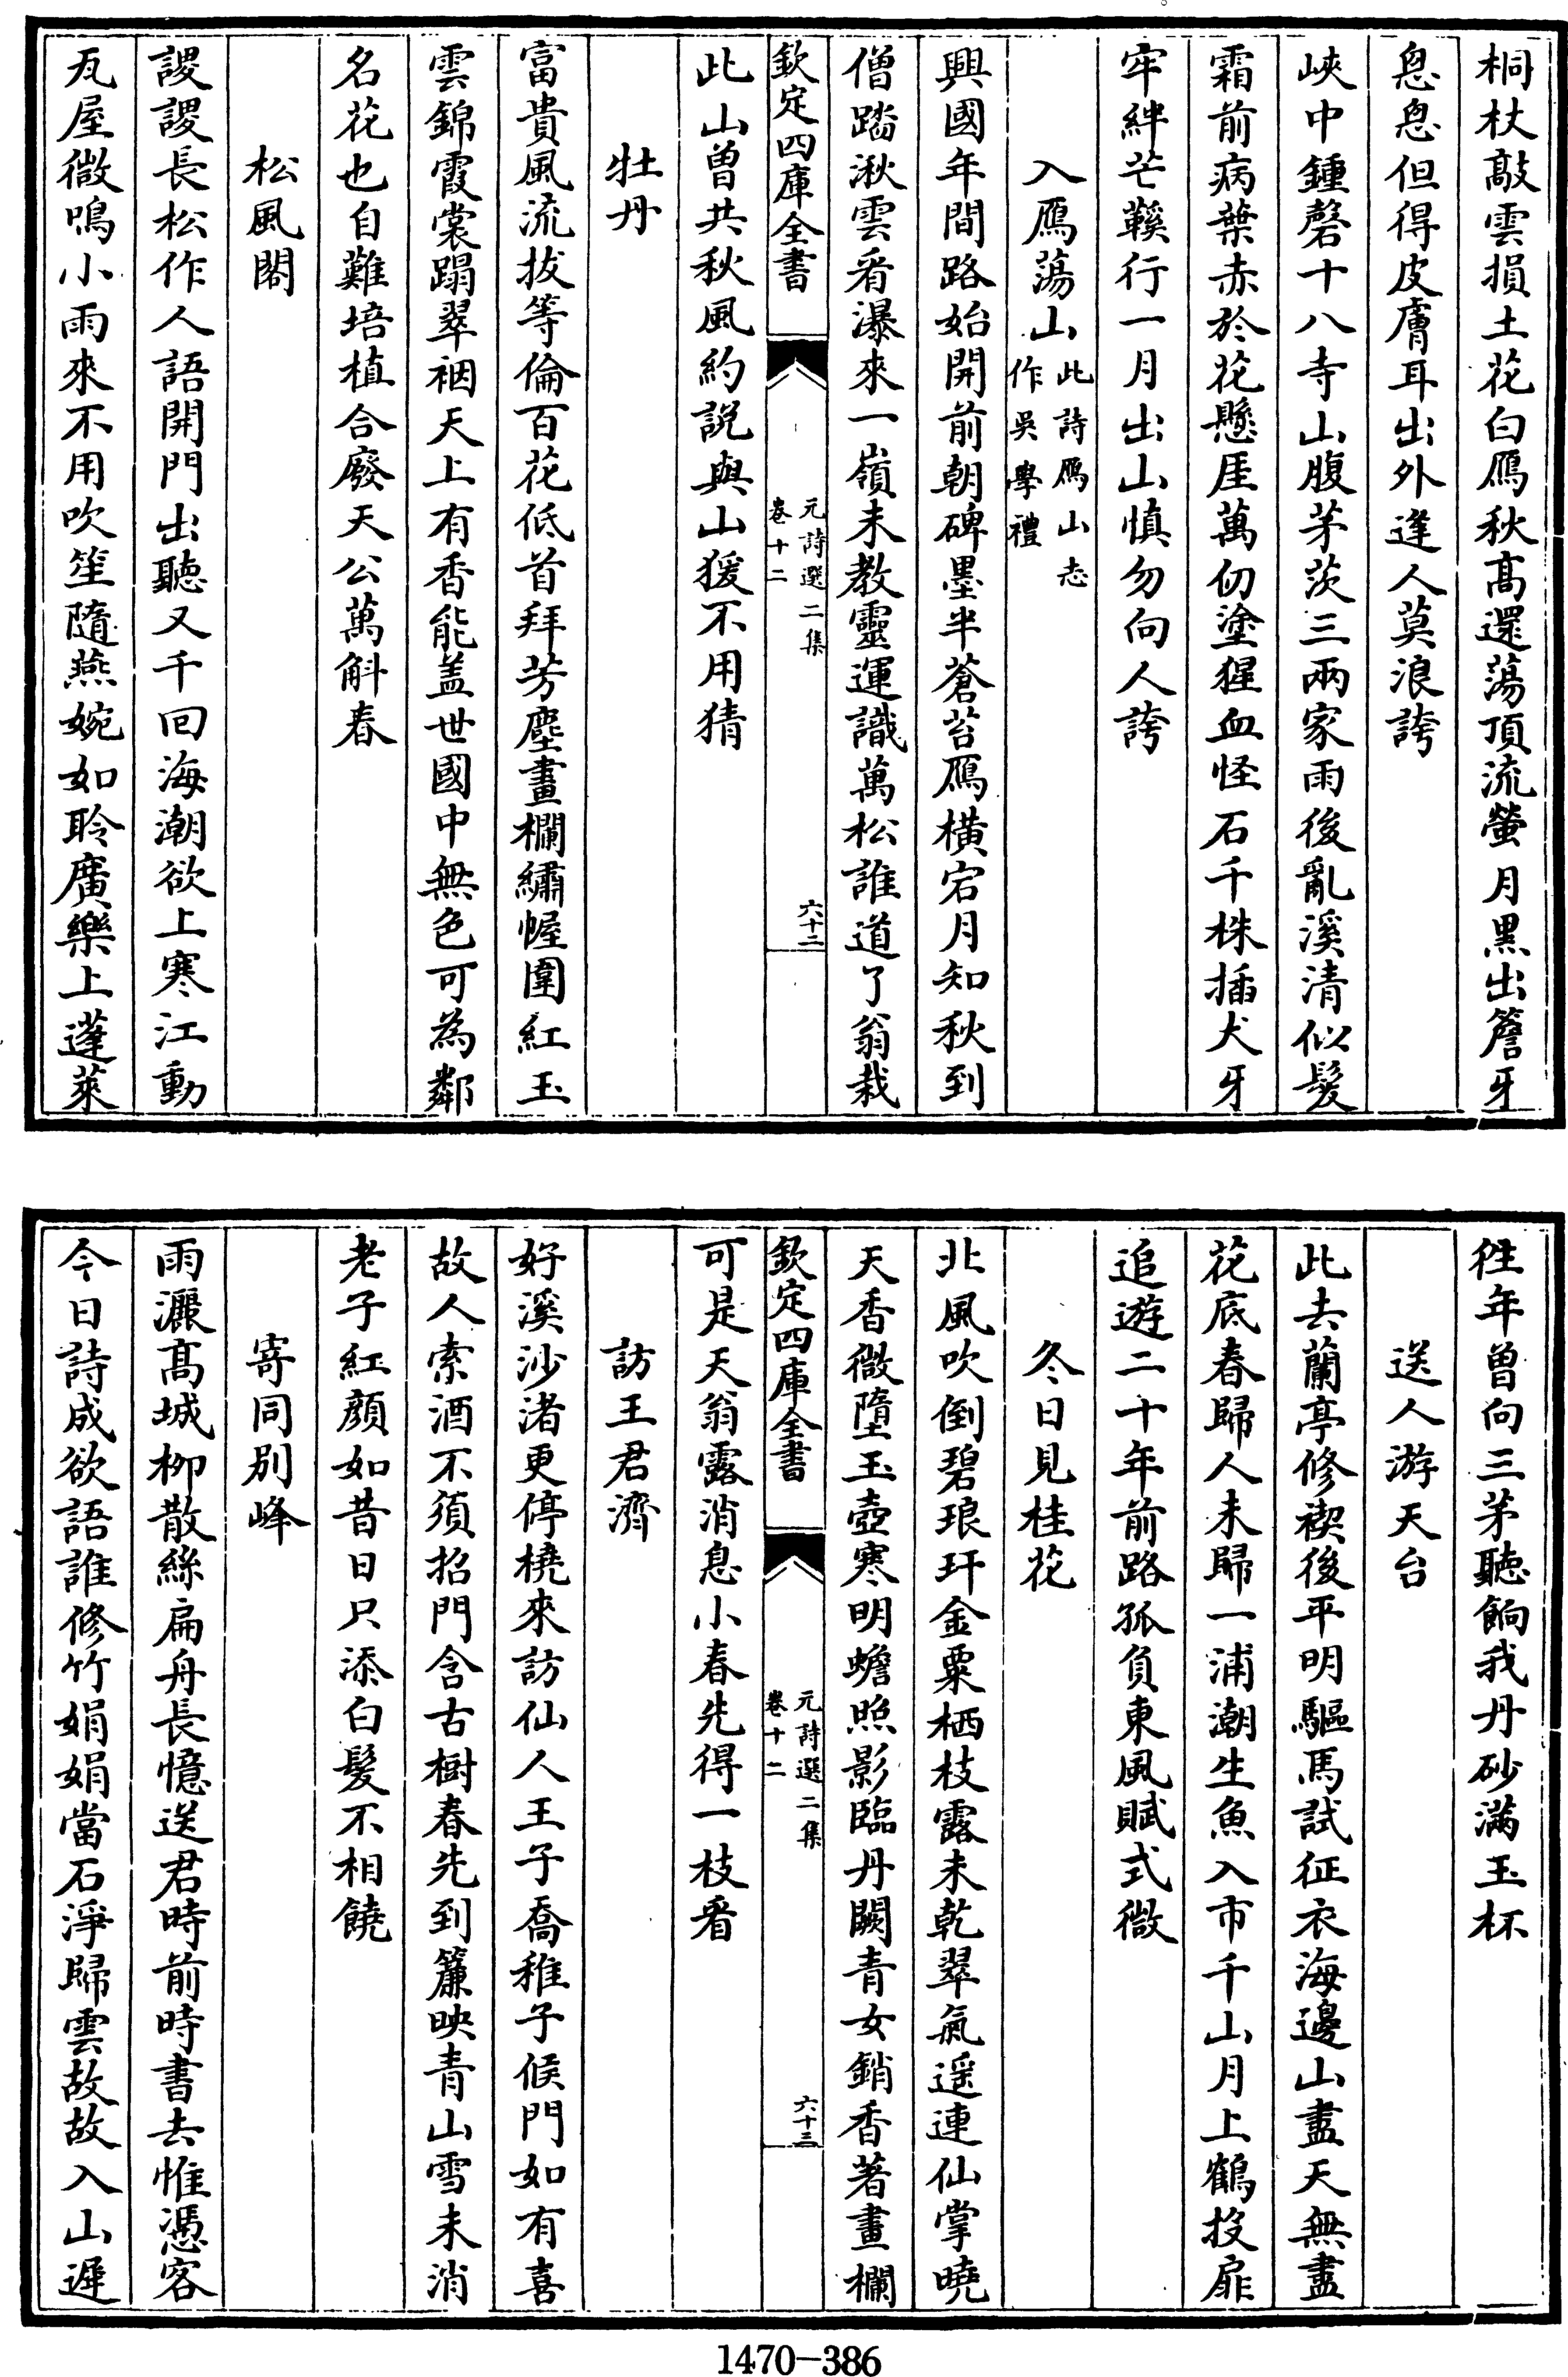 桐杖敲雲損土花白鴈秋髙還蕩頂流螢月黒出簷牙
悤悤但得皮膚耳出外逢人莫浪誇
峽中鍾磬十八寺山腹茅茨三兩家雨後亂溪清似髮
霜前病葉赤於花懸厓萬仞塗猩血怪石千株插犬牙
牢絆芒鞵行一月出山慎勿向人誇
入鴈蕩山此詩鴈山志作吳學禮
興國年間路始開前朝碑墨半蒼苔鴈橫宕月知秋到
僧踏湫雲看瀑來一嶺未教靈運識萬松誰道了翁栽
欽定四庫全書
元詩選二集
卷十二
六十二
此山曽共秋風約説與山猨不用猜
牡丹
富貴風流拔等倫百花低首拜芳塵畫欄繡幄圍紅玉
雲錦霞裳蹋翠裀天上有香能盖世國中無色可為鄰
名花也自難培植合廢天公萬斛春
松風閣
謖謖長松作人語開門出聽又千回海潮欲上寒江動
瓦屋微鳴小雨來不用吹笙隨燕婉如聆廣樂上蓬萊
徃年曽向三茅聽餉我丹砂滿玉杯
送人游天台
此去蘭亭修禊後平明驅馬試征衣海邊山盡天無盡
花底春歸人未歸一浦潮生魚入市千山月上鶴投扉
追遊二十年前路孤負東風賦式微
冬日見桂花
北風吹倒碧琅玕金粟栖枝露未乾翠氣遥連仙掌曉
天香微墮玉壺寒明蟾照影臨丹闕青女銷香著畫欄
欽定四庫全書
元詩選二集
卷十二
六十三
可是天翁露消息小春先得一枝看
訪王君濟
好溪沙渚更停橈來訪仙人王子喬稚子候門如有喜
故人索酒不須招門含古樹春先到簾映青山雪未消
老子紅顏如昔日只添白髮不相饒
寄同别峰
雨灑髙城柳散絲扁舟長憶送君時前時書去惟憑客
今日詩成欲語誰修竹娟娟當石淨歸雲故故入山遲
1470-386